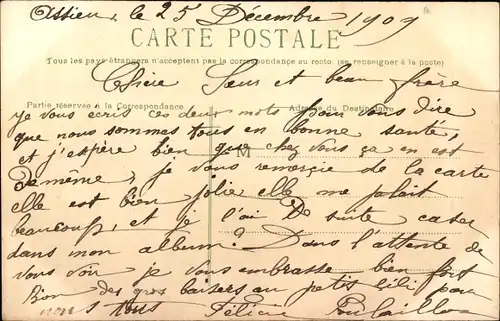 Assier, le 25 Décembre 1909
CARTE POSTALE
Tous les pays étrangers n'acceptent pas la correspondance au recto (se renseigner à la poste)
Chère Sœur et beau frère
Partie réservée à la Correspondance
Adresse du Destinataire
je vous écris ces deux mots pour vous dire
que nous sommes tous en bonne santé,
et j'espère bien que chez vous ça en est
M
de même, je vous remercie de la carte
elle est bien jolie elle me plaît
beaucoup, et je l'ai De suite caser
dans mon album? Dans l'attente de
vous voir je vous embrasse bien fort
Bien des gros baisers au petit Lili pour
nous tous Félicie Poulaillon